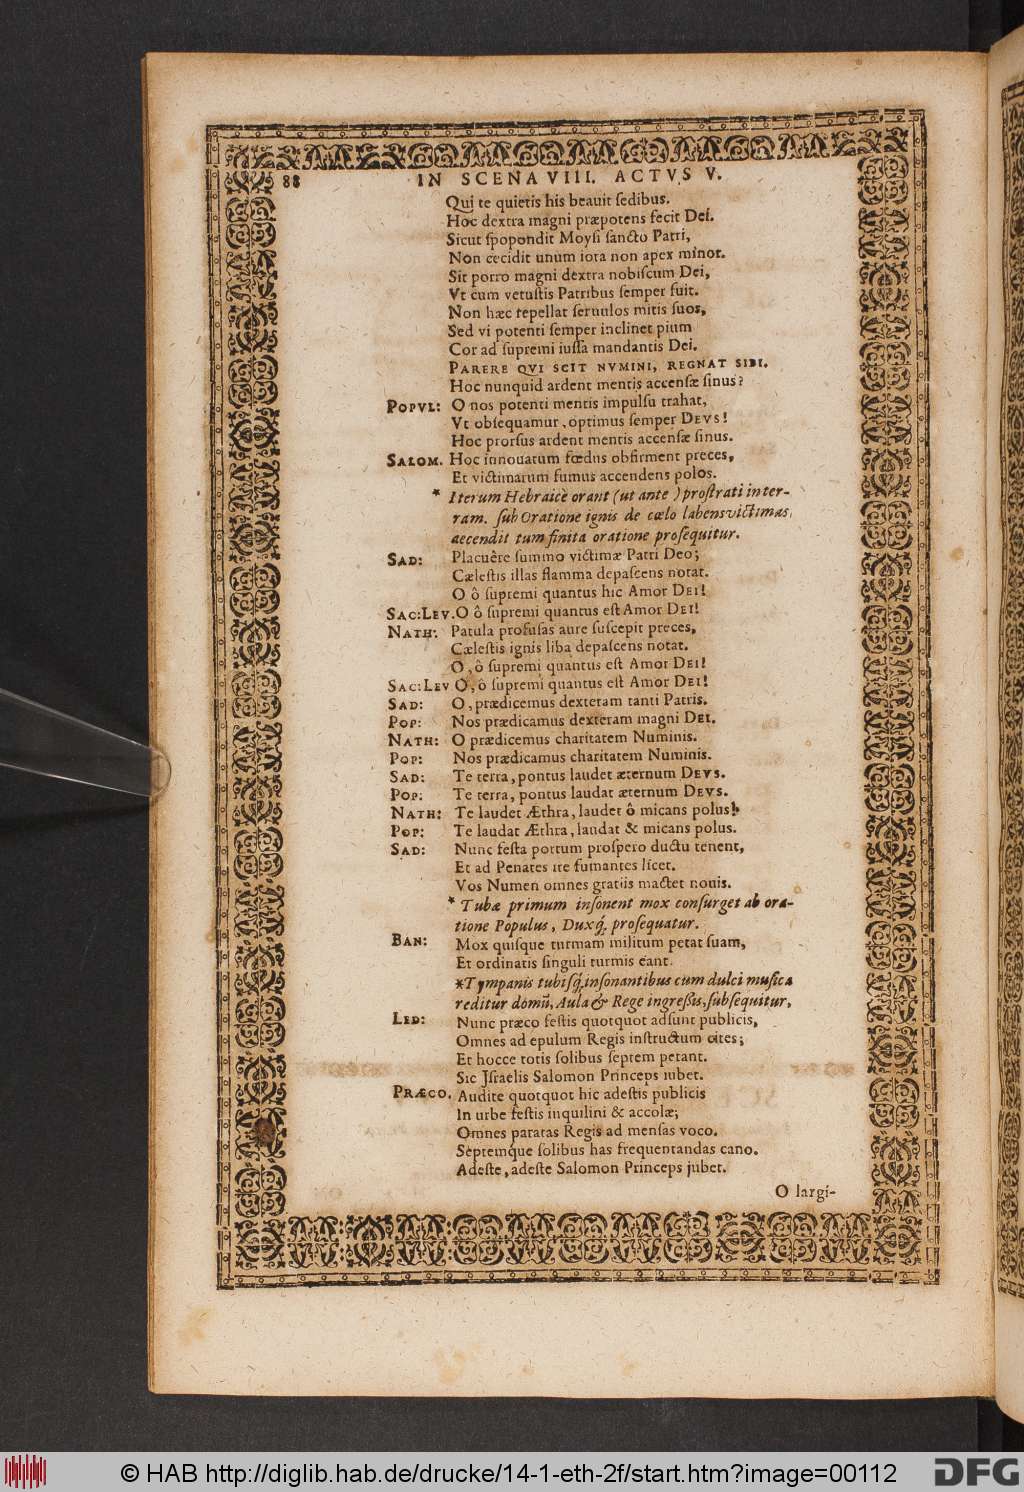 88 IN SCENA VIII. ACTVS V.
Qui te quietis his beauit ſedibus.
Hoc dextra magni præpotens fecit Deí.
Sicut ſpopondit Moyſi ſancto Patri,
Non cecidit unum iota non apex minor.
Sit porro magni dextra nobiſcum Dei,
Vt cum vetuſtis Patribus ſemper fuit.
Non hæc repellat ſeruulos mitis ſuos,
Sed vi potenti ſemper inclinet pium
Cor ad ſupremi iuſſa mandantis Dei.
PARERE QVI SCIT NVMINI, REGNAT SIBI.
Hoc nunquid ardent mentis accenſæ ſinus?
POPVL: O nos potenti mentis impulſu trahat,
Vt obſequamur, optimus ſemper DEVS!
Hoc prorſus ardent mentis accenſæ ſinus.
SALOM. Hoc innouatum fœdus obfirment preces,
Et victimarum fumus accendens polos.
* Iterum Hebraicè orant (ut ante) proſtrati in ter-
ram. ſub Oratione ignis de cœlo labens victimas,
accendit tum finita oratione proſequitur.
SAD: Placuêre ſummo victimæ Patri Deo;
Cæleſtis illas flamma depaſcens notat.
O ô ſupremi quantus hic Amor DEI!
SAC: LEV. O ô ſupremi quantus eſt Amor DEI!
NATH: Patula profuſas aure ſuſcepit preces,
Cæleſtis ignis liba depaſcens notat.
O, ô ſupremi quantus eſt Amor DEI!
SAC: LEV O, ô ſupremi quantus eſt Amor DEI!
SAD: O, prædicemus dexteram tanti Patris.
POP: Nos prædicamus dexteram magni DEI.
NATH: O prædicemus charitatem Numinis.
POP: Nos prædicamus charitatem Numinis.
SAD: Te terra, pontus laudet æternum DEVS.
POP: Te terra, pontus laudat æternum DEVS.
NATH: Te laudet Æthra, laudet ô micans polus!
POP: Te laudat Æthra, laudat & micans polus.
SAD: Nunc feſta portum proſpero ductu tenent,
Et ad Penates ire fumantes licet.
Vos Numen omnes gratiis mactet nouis.
* Tubæ primum inſonent mox conſurget ab ora-
tione Populus, Duxq́; proſequatur.
BAN: Mox quiſque turmam militum petat ſuam,
Et ordinatis ſinguli turmis eant.
*Tympanis tubiſq́; inſonantibus cum dulci muſica
reditur domũ, Aula & Rege ingreßis, ſubſequitur,
LED: Nunc præco feſtis quotquot adſunt publicis,
Omnes ad epulum Regis inſtructum cites;
Et hocce totis ſolibus ſeptem petant.
Sic Jſraelis Salomon Princeps iubet.
PRÆCO. Audite quotquot hic adeſtis publicis
In urbe feſtis inquilini & accolæ;
Omnes paratas Regis ad menſas voco.
Septemque ſolibus has frequentandas cano.
Adeſte, adeſte Salomon Princeps jubet.
O largi-
© HAB http://diglib.hab.de/drucke/14-1-eth-2f/start.htm?image=00112
DFG